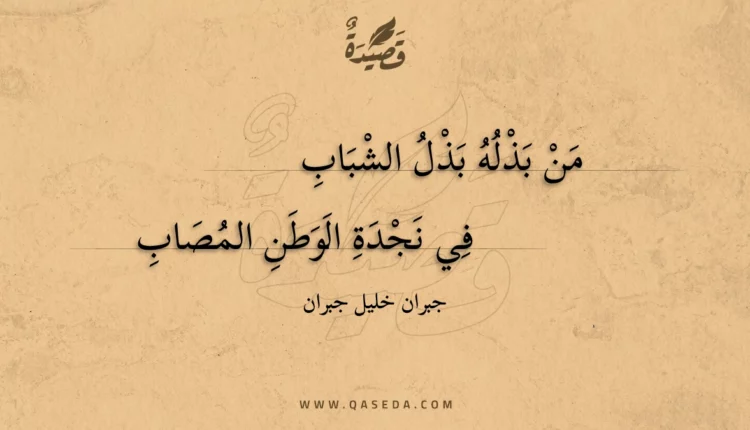 قَصِيْدَةٌ
مَنْ بَذْلُهُ بَذْلُ الشْبَابِ
فِي نَجْدَةِ الَوَطَنِ المُصَابِ
جبران خليل جبران
WWW.QASEDA.COM